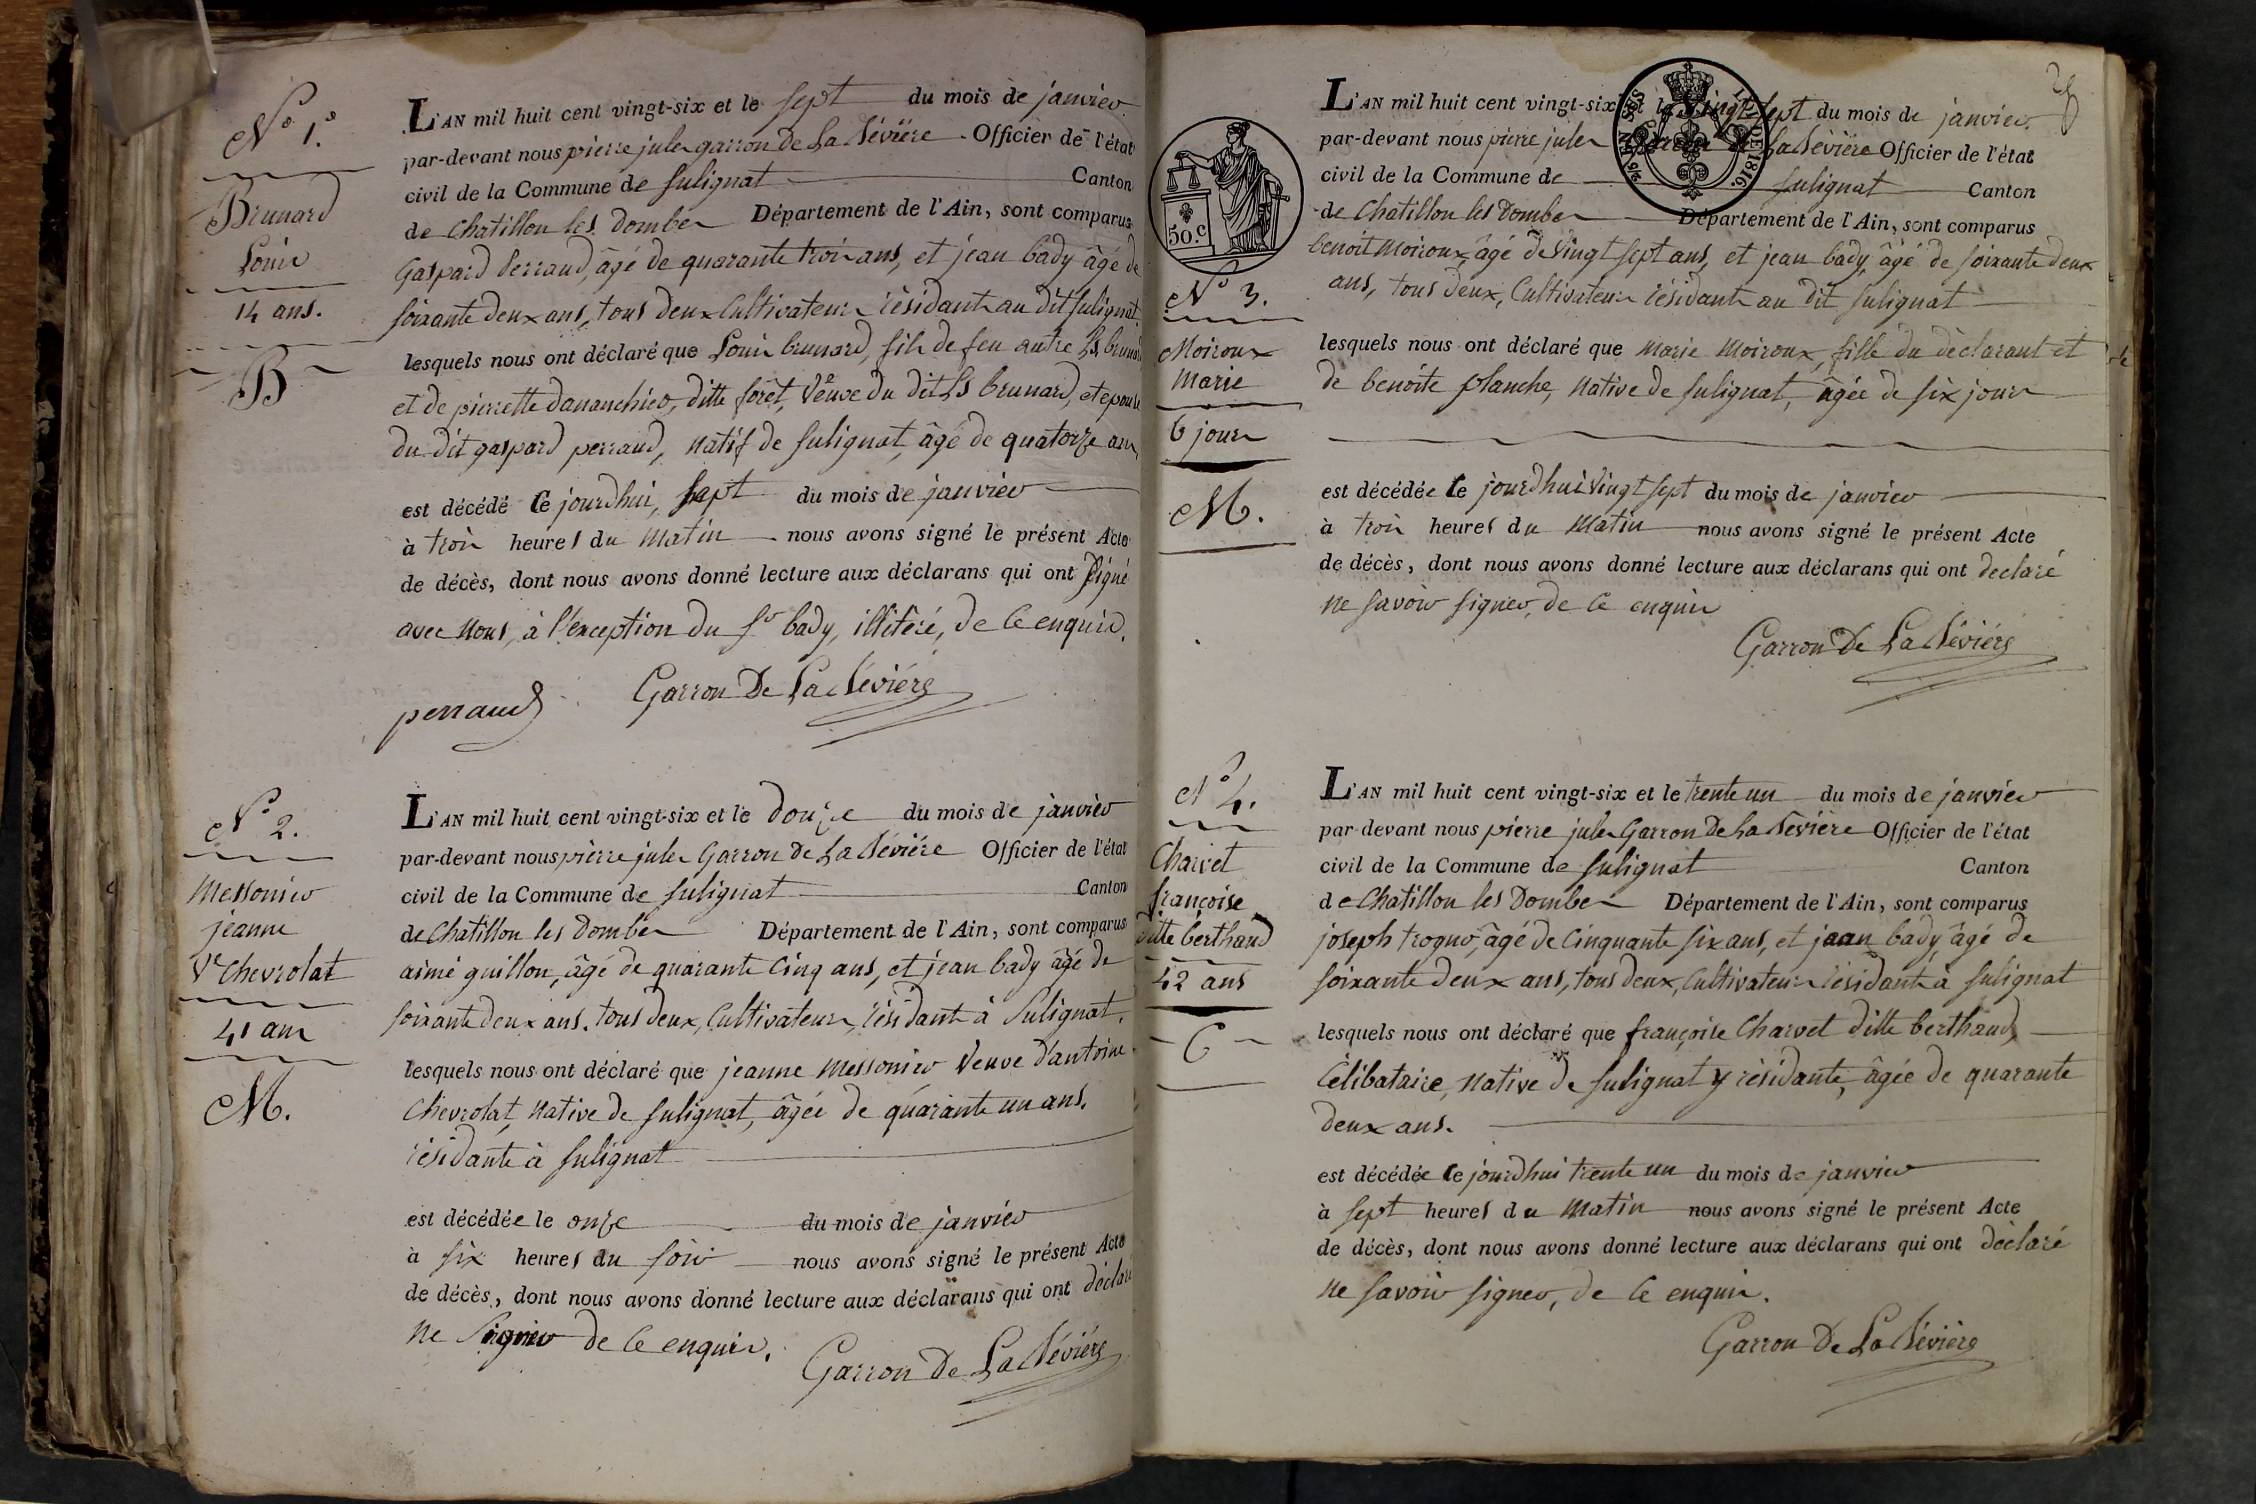 N° 1.°
Brunard
Louis
14 ans.
B
L'AN mil huit cent vingt-six et le sept du mois de janvier
par-devant nous pierre jules garron de La Sévière Officier de l'état
civil de la Commune de sulignat Canton
de Chatillon les Dombes Département de l'Ain, sont comparus
Gaspard Perraud, âgé de quarante trois ans, et jean bady âgé de
soixante deux ans, tous deux Cultivateurs résidants au dit sulignat
lesquels nous ont déclaré que Louis brunard, fils de feu autre Ls brunard
et de pierrette dananchier, ditte foret, Veuve du dit Ls brunard, et epouse
du dit gaspard perraud, natif de sulignat, âgé de quatorze ans
est décédé Ce jourdhui, sept du mois de janvier
à trois heures du matin nous avons signé le présent Acte
de décès, dont nous avons donné lecture aux déclarans qui ont signé
avec nous, à l'exception du Sr bady, illitéré, de ce enquis.
perraud Garron De La Sévière
N° 2.
Messonier
jeanne
Ve Chevrolat
41 ans
M.
L'AN mil huit cent vingt-six et le Douze du mois de janvier
par-devant nous pierre jules Garron de La Sévière Officier de l'état
civil de la Commune de sulignat Canton
de Chatillon les Dombes Département de l'Ain, sont comparus
aimé guillon, âgé de quarante Cinq ans, et jean bady âgé de
soixante deux ans. tous deux, Cultivateurs, résidants à Sulignat.
lesquels nous ont déclaré que jeanne Messonier Veuve d'antoine
Chevrolat, native de sulignat, âgée de quarante un ans.
résidante à sulignat
est décédée le onze du mois de janvier
à six heures du soir nous avons signé le présent Acte
de décès, dont nous avons donné lecture aux déclarans qui ont déclaré
ne signer de Ce enquis.
Garron De La Sévière
50.c
LOI DE 1816.
N° 3.
Moiroux
Marie
6 jours
M.
L'AN mil huit cent vingt-six et le vingt sept du mois de janvier
par-devant nous pierre jules Garron de La Sévière Officier de l'état
civil de la Commune de sulignat Canton
de Chatillon les Dombes Département de l'Ain, sont comparus
benoit Moiroux, âgé de vingt sept ans, et jean bady, âgé de soixante deux
ans, tous deux, Cultivateurs résidants au dit sulignat
lesquels nous ont déclaré que Marie Moiroux, fille du déclarant et
de benoite planche, Native de sulignat, âgée de six jours
est décédée Ce jourdhui vingt sept du mois de janvier
à trois heures du Matin nous avons signé le présent Acte
de décès, dont nous avons donné lecture aux déclarans qui ont declaré
ne savoir signer, de Ce enquis
Garron De La Sévière
N° 4.
Charvet
françoise
ditte berthaud
42 ans
C
L'AN mil huit cent vingt-six et le trente un du mois de janvier
par-devant nous pierre jules Garron De La Sévière Officier de l'état
civil de la Commune de sulignat Canton
de Chatillon les Dombes Département de l'Ain, sont comparus
joseph trogno, âgé de Cinquante six ans, et jean bady, âgé de
soixante deux ans, tous deux, Cultivateurs résidants à sulignat
lesquels nous ont déclaré que françoise Charvet ditte berthaud,
Célibataire, Native de sulignat y résidante, âgée de quarante
deux ans.
est décédée Ce jourdhui trente un du mois de janvier
à sept heures du Matin nous avons signé le présent Acte
de décès, dont nous avons donné lecture aux déclarans qui ont déclaré
ne savoir signer, de Ce enquis.
Garron De La Sévière